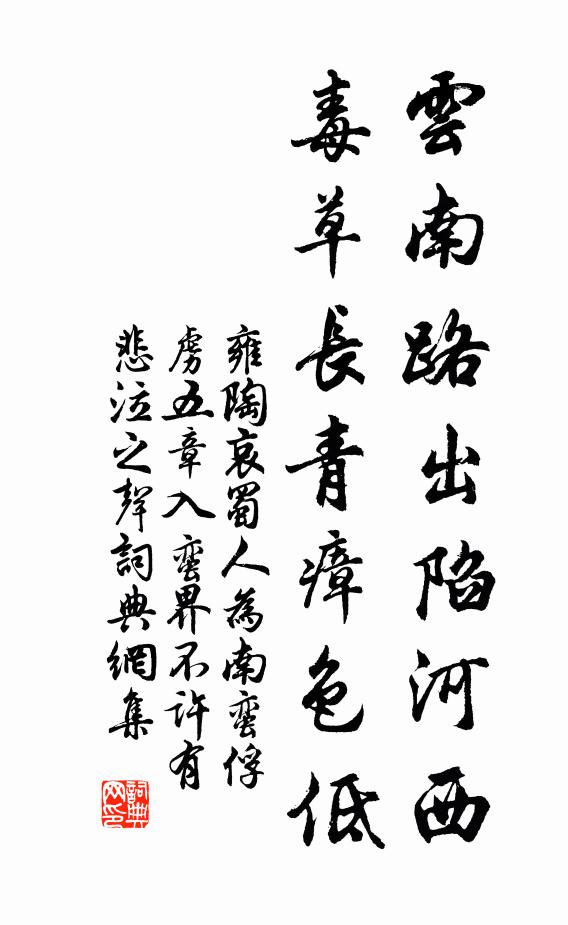 雲南路出陷河西
毒草長青瘴色低
雍陶哀蜀人為南蠻俘
虜五章入蠻界不許有
悲泣之聲詞典網集
詞典
网印